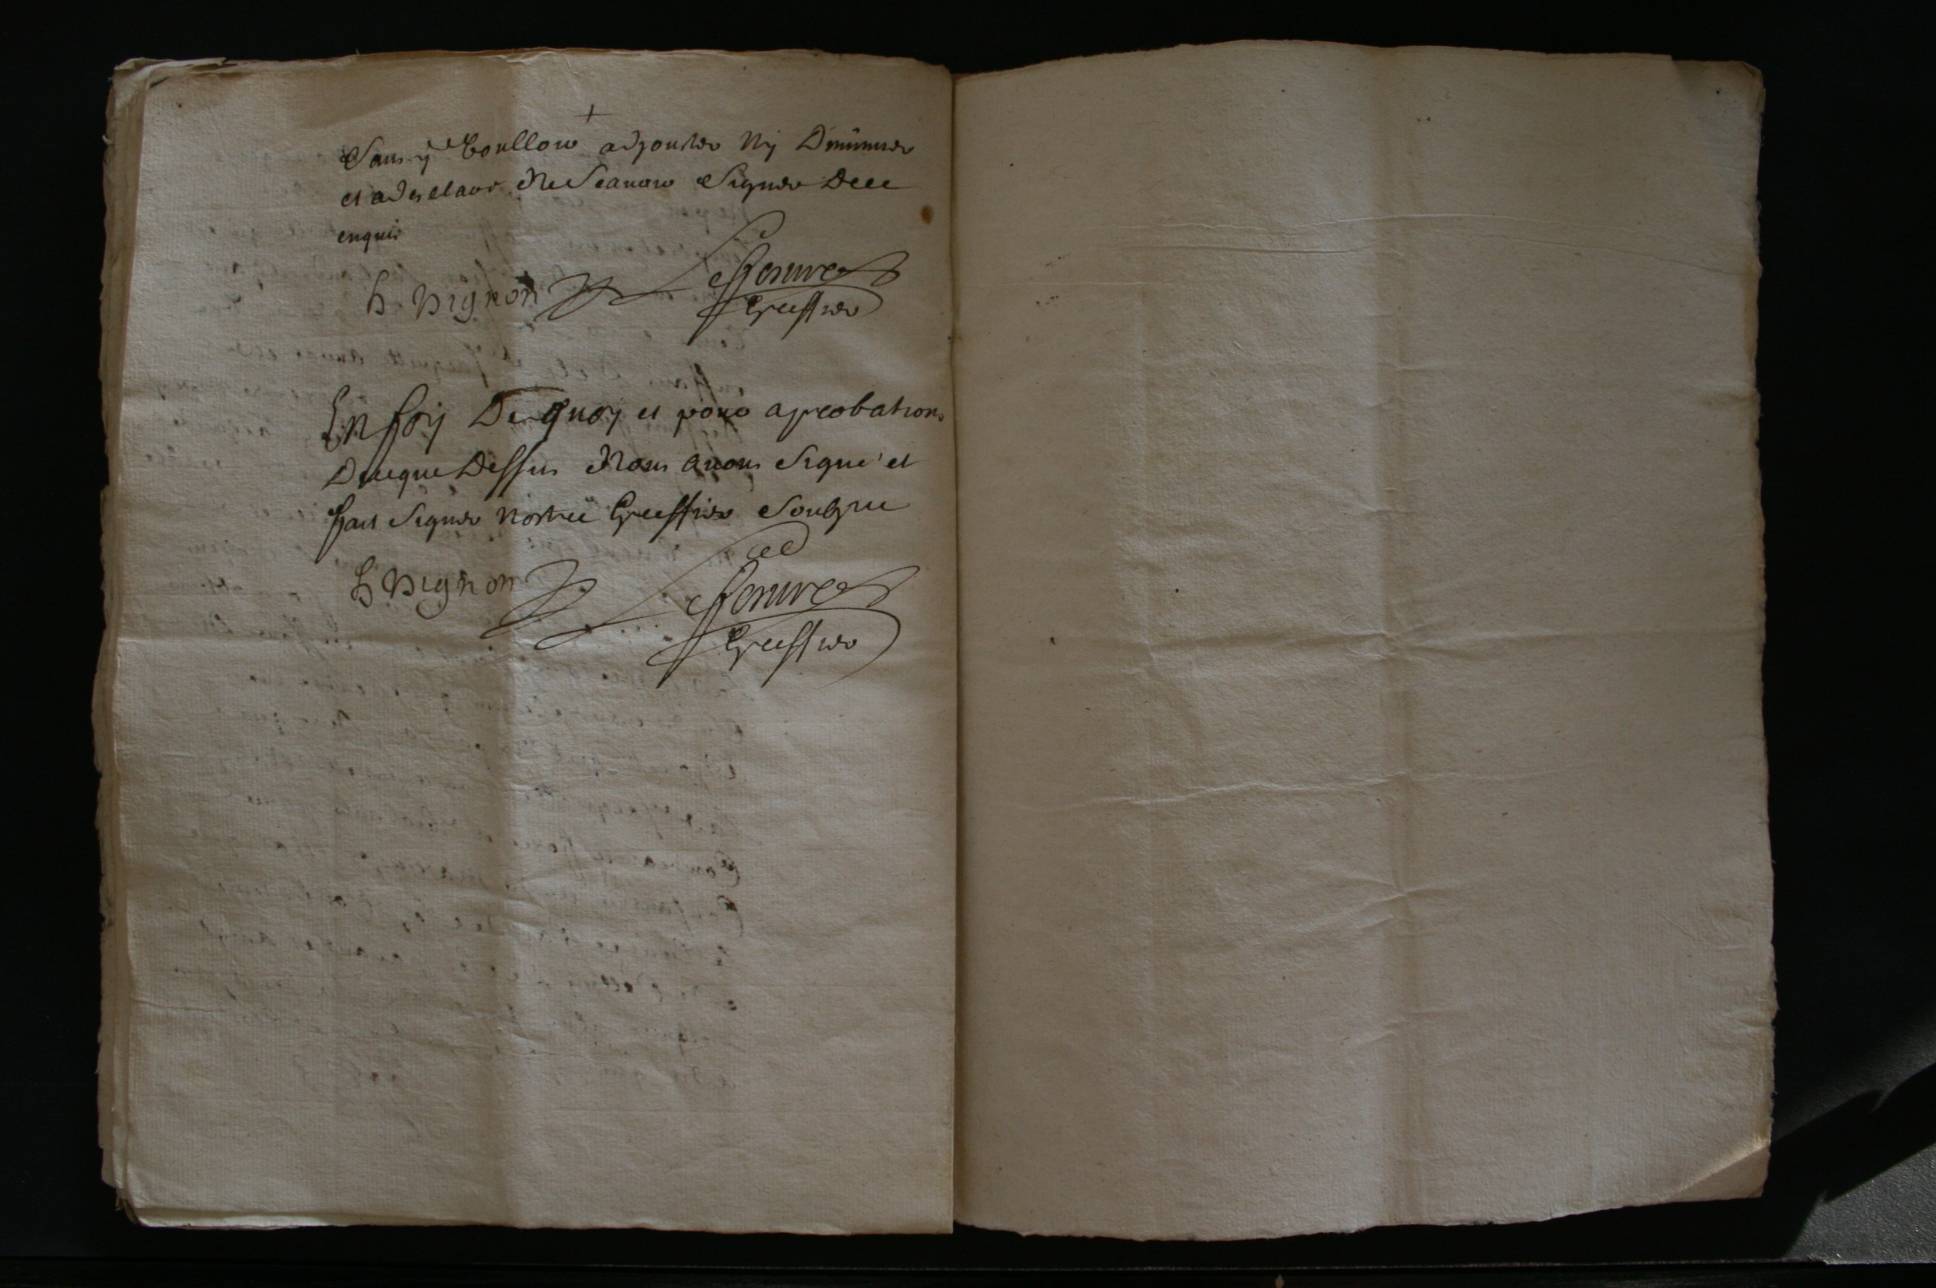 +
Sans y voulloir adjouster ny Diminuer
et a desclaré Ne Scavoir Signer Dece
enquis
h vignon
Greffier
En foy De quoy et pour aprobation
Dueque Dessus Nous avons Signé et
fait Signer Nostre Greffier Soubzne
h vignon
Greffier